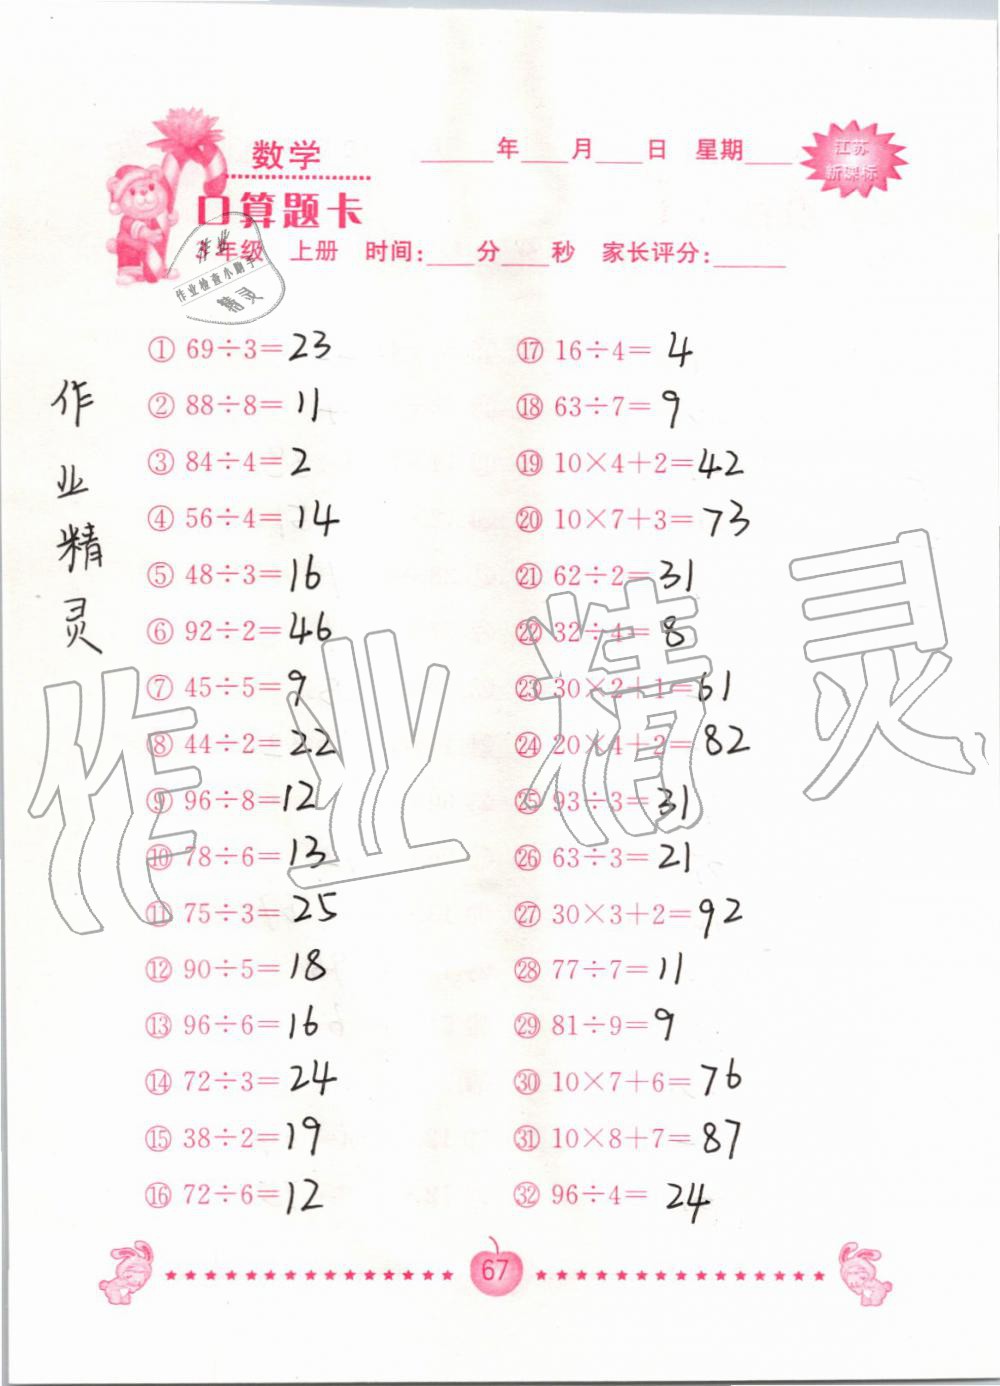 数学
____年____月____日 星期____
江苏
新课标
口算题卡
年级 上册 时间:____分____秒 家长评分:____
作业
作业检查小助手
精灵
作业精灵
① 69÷3=23
② 88÷8=11
③ 84÷4=2
④ 56÷4=14
⑤ 48÷3=16
⑥ 92÷2=46
⑦ 45÷5=9
⑧ 44÷2=22
⑨ 96÷8=12
⑩ 78÷6=13
⑪ 75÷3=25
⑫ 90÷5=18
⑬ 96÷6=16
⑭ 72÷3=24
⑮ 38÷2=19
⑯ 72÷6=12
⑰ 16÷4=4
⑱ 63÷7=9
⑲ 10×4+2=42
⑳ 10×7+3=73
㉑ 62÷2=31
㉒ 32÷4=8
㉓ 30×2+1=61
㉔ 20×4+2=82
㉕ 93÷3=31
㉖ 63÷3=21
㉗ 30×3+2=92
㉘ 77÷7=11
㉙ 81÷9=9
㉚ 10×7+6=76
㉛ 10×8+7=87
㉜ 96÷4=24
作业精灵
67